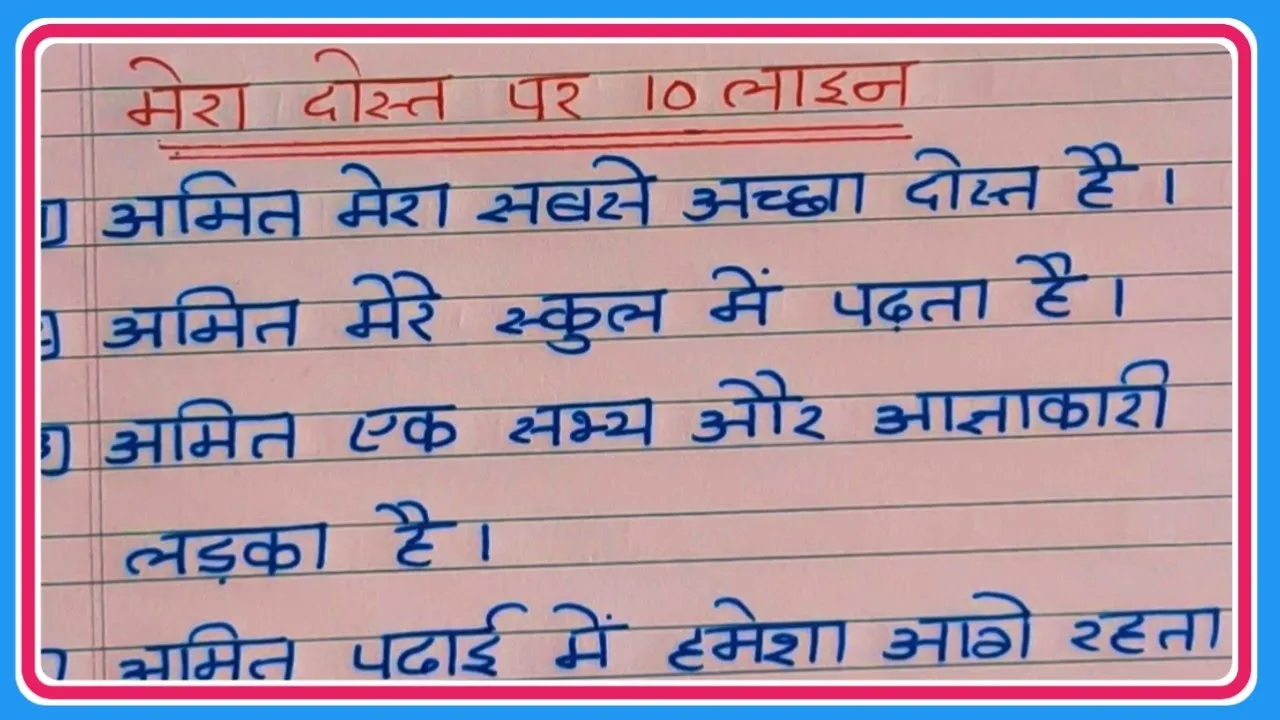 मेरा दोस्त पर 10 लाइन
1) अमित मेरा सबसे अच्छा दोस्त है।
2) अमित मेरे स्कुल में पढ़ता है।
3) अमित एक सभ्य और आज्ञाकारी
लड़का है।
अमित पढाई में हमेशा आगे रहता